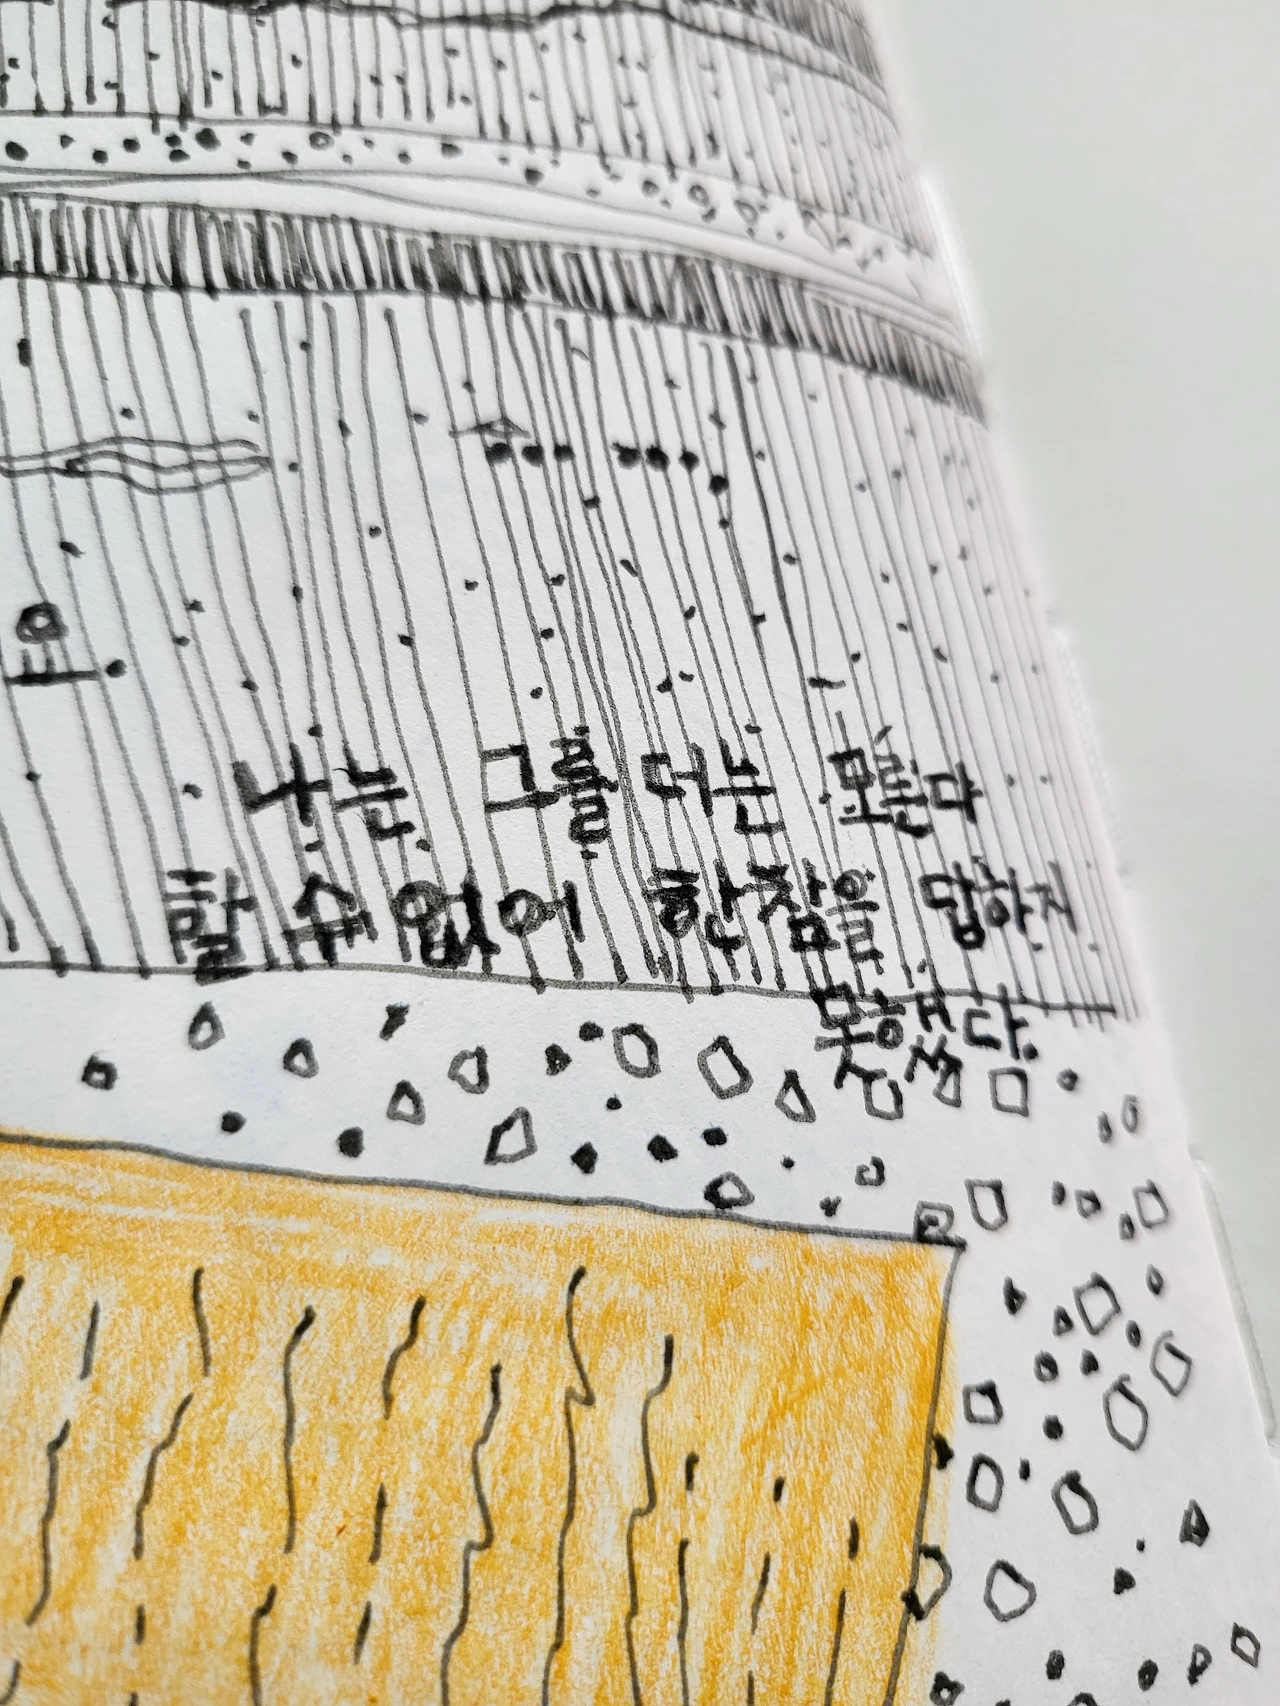 나는 그를 더는 모른다
수 없어 한참을 답하지
못했다.